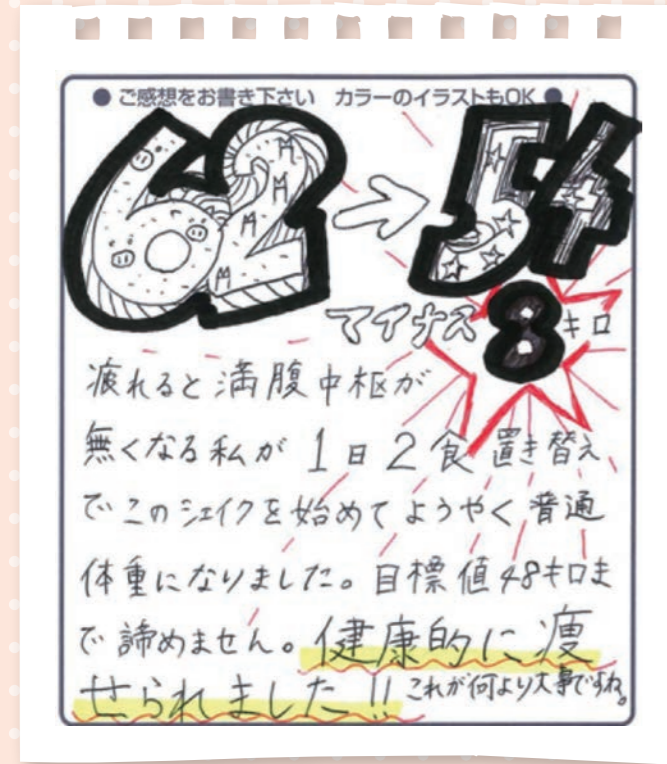 ● ご感想をお書き下さい カラーのイラストもOK ●
62→54
マイナス8キロ
疲れると満腹中枢が
無くなる私が1日2食置き替え
でこのシェイクを始めてようやく普通
体重になりました。目標値48キロま
で諦めません。健康的に痩
せられました!!これが何より大事ですね。